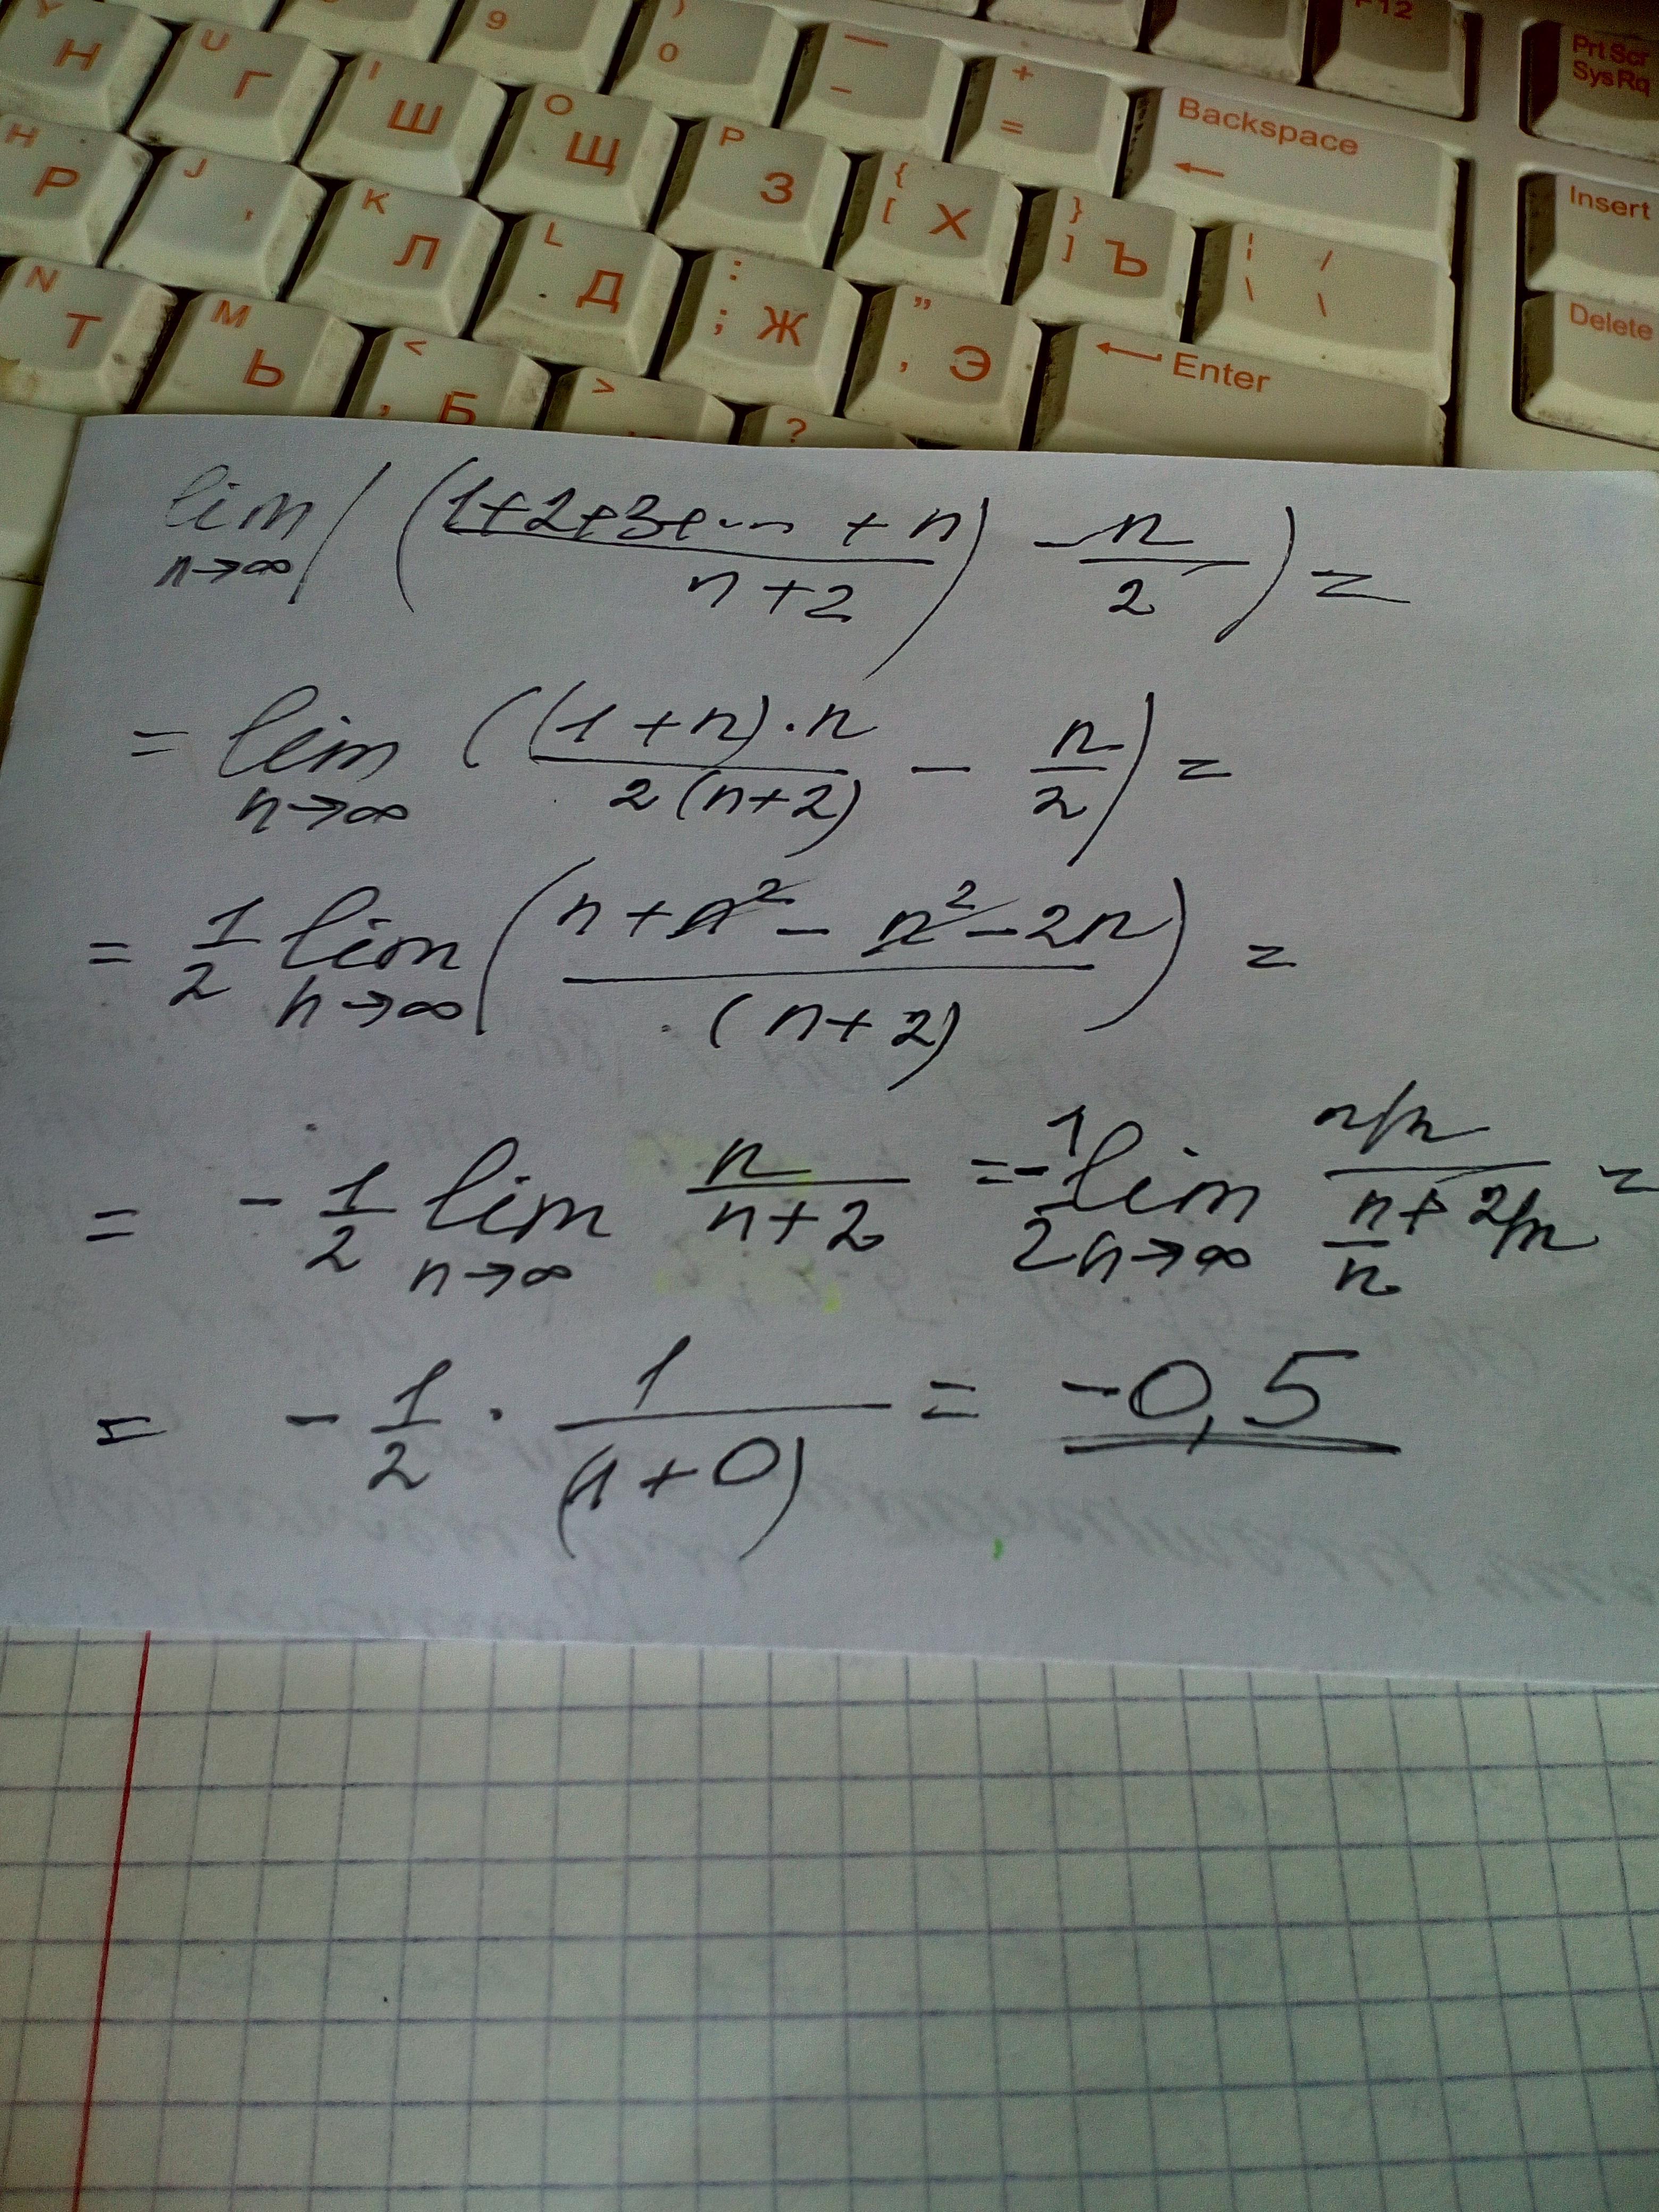 Y Н U Г I Ш 9 ) 0 — – + = Backspace ← F12 Prt Scr SysRq
H Р J ' K Л O Щ P З { [ Х } ] Ъ ¦ / \ \ Insert
N Т M Ь < , Б L Д : ; Ж " , Э ← Enter Delete
> ?
lim n→∞ ( ( (1+2+3+...+n) / (n+2) ) - n/2 ) =
= lim n→∞ ( ((1+n)·n) / (2(n+2)) - n/2 ) =
= 1/2 lim n→∞ ( (n+n² - n² - 2n) / (n+2) ) =
= - 1/2 lim n→∞ n/(n+2) = - 1/2 lim n→∞ (n/n) / (n/n + 2/n) =
= - 1/2 · 1/(1+0) = -0,5